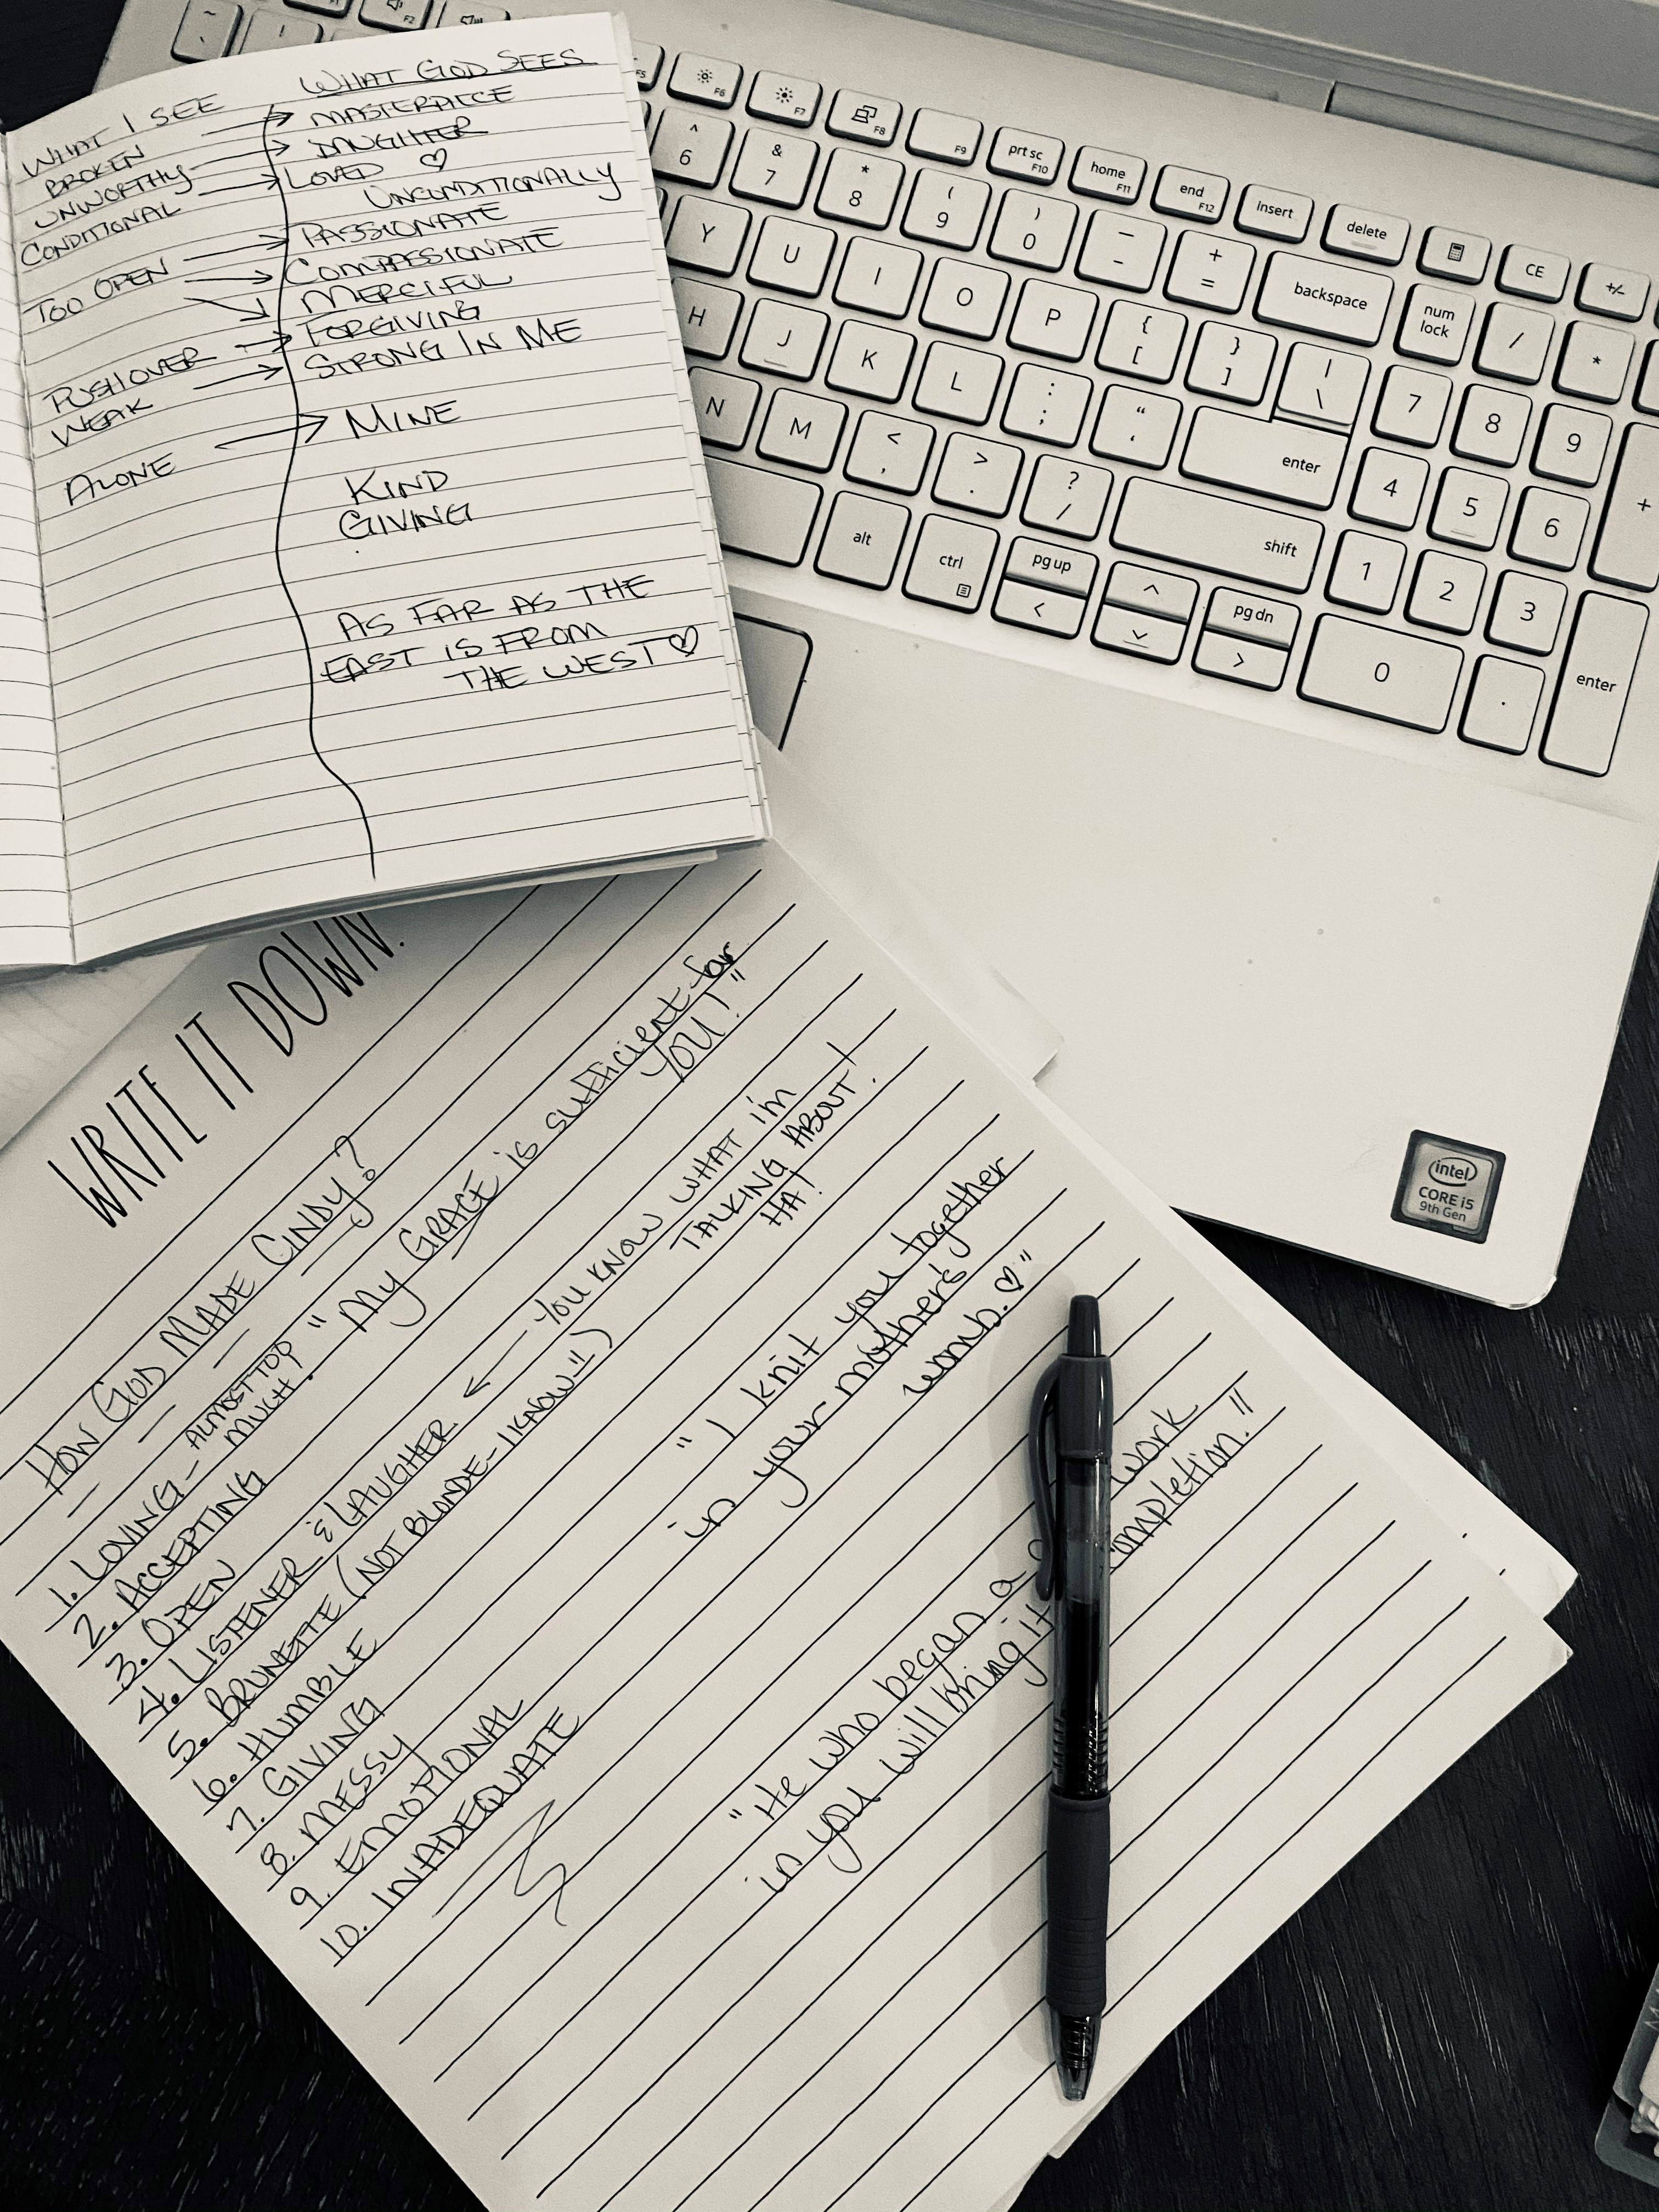 WHAT I SEE
BROKEN
UNWORTHY
CONDITIONAL
TOO OPEN
PUSHOVER
WEAK
ALONE
WHAT GOD SEES
MASTERPIECE
DAUGHTER
LOVED ♡
UNCONDITIONALLY
PASSIONATE
COMPASSIONATE
MERCIFUL
FORGIVING
STRONG IN ME
MINE
KIND
GIVING
AS FAR AS THE
EAST IS FROM
THE WEST ♡
WRITE IT DOWN.
HOW GOD MADE CINDY?
1. LOVING - ALMOST TOO
MUCH.
2. ACCEPTING
3. OPEN
4. LISTENER & LAUGHER ← YOU KNOW WHAT I'M
TALKING ABOUT!
HA!
5. BRUNETTE (NOT BLONDE - I KNOW!!)
6. HUMBLE
7. GIVING
8. MESSY
9. EMOTIONAL
10. INADEQUATE
"My GRACE is sufficient for
YOU!"
"I knit you together
in your mother's
womb. ♡"
"He who began a work
in you will bring it ompletion."
F2
F5
F6
F7
F8
F9
prt sc F10
home F11
end F12
insert
delete
~ !
^ 6
& 7
* 8
( 9
) 0
_ -
+ =
backspace
num lock
/
*
CE
+/-
Y U I O P { [ } ] | \
7 8 9 +
H J K L : ; " ' enter
4 5 6
N M < , > . ? / shift
1 2 3 enter
alt ctrl pg up < ^ pg dn >
0 .
intel
CORE i5
9th Gen